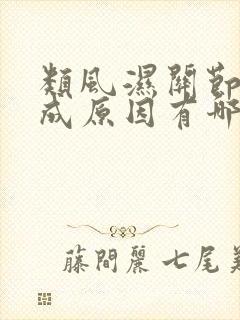 類風濕關節
成原因有哪
藤間麗 七尾美